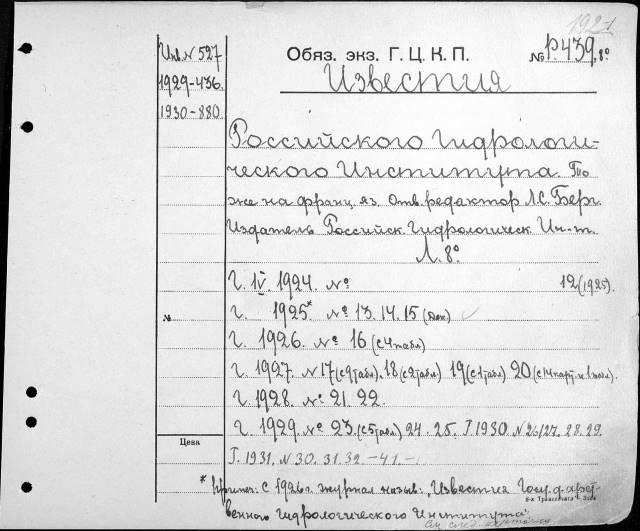 1921
Инв. N 527
1929-436.
1930-880.
Обяз. экз. Г. Ц. К. П.
№ Р.439, 8°
Известия
Российского Гидрологи-
ческого Института. То
же на франц. яз. Отв. редактор Л.С. Берг.
Издатель Российск. Гидрологическ. Ин-т.
Л. 8°
Г. IV. 1924. № 12 (1925).
№
Г. 1925* № 13. 14. 15 (Док)
Г. 1926. № 16 (с 4 табл)
Г. 1927. N 17 (с 9 табл), 18 (с 2 табл) 19 (с 1 табл) 20 (с 14 карт. и 1 табл.)
Г. 1928. № 21. 22.
Г. 1929. № 23. (с 5 табл) 24. 25. Г. 1930. N 26/27. 28. 29.
Цена
Г. 1931. N 30. 31. 32 - 41. -
* Примеч. С 1926 г. журнал назыв. „Известия Государст-
венного Гидрологического Института“.
См. след. карточку